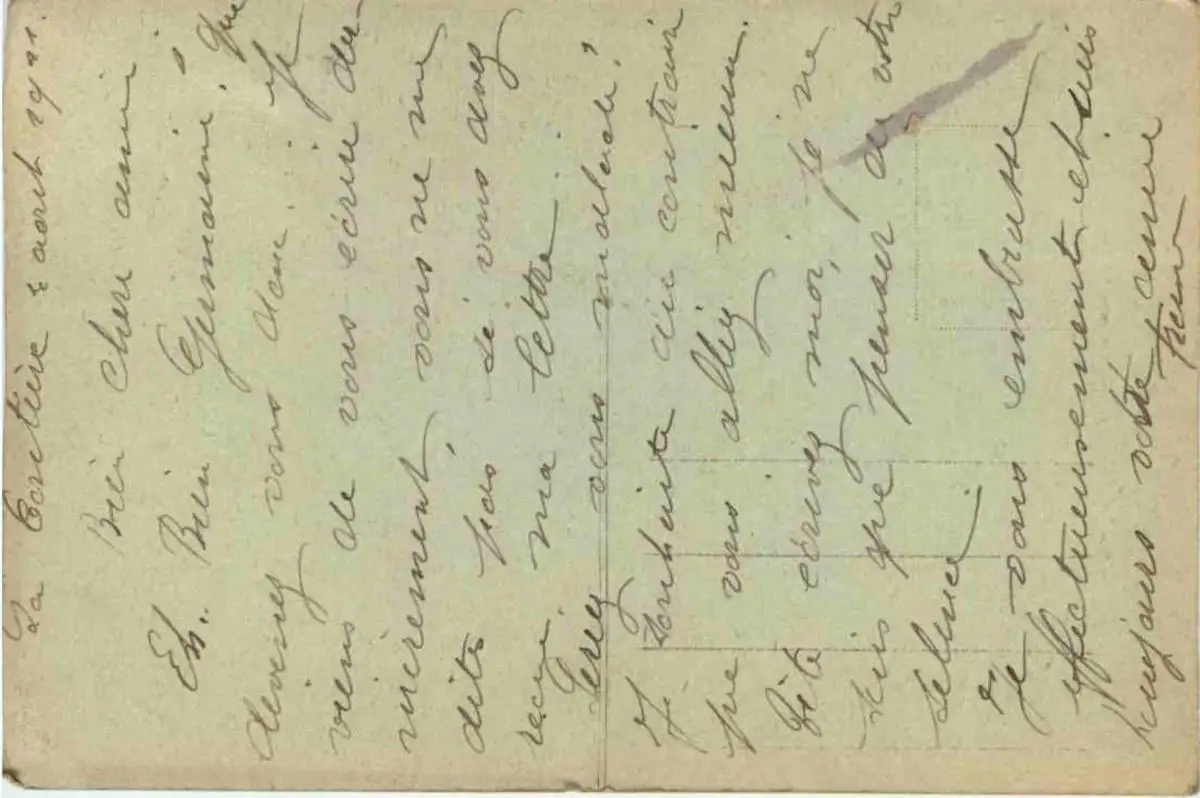 La Corti​ère 2 aout 1921.
Bien chere amie
Eh.. Bien Germaine, que
devenez vous donc je
viens de vous écrire der-
nierement, vous ne me
dite pas si vous avez
recu ma lettre.
Seriez vous malade?
Je souhaite au contraire
que vous alliez mieux.
Vite écrivez moi, je ne
sais que penser de votre
silence
Je vous embrasse
affectueusement et suis
toujours votre